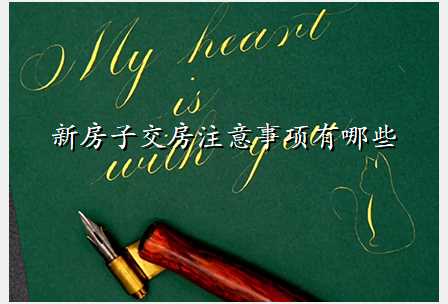 My heart
is
新房子交房注意事项有哪些
with you